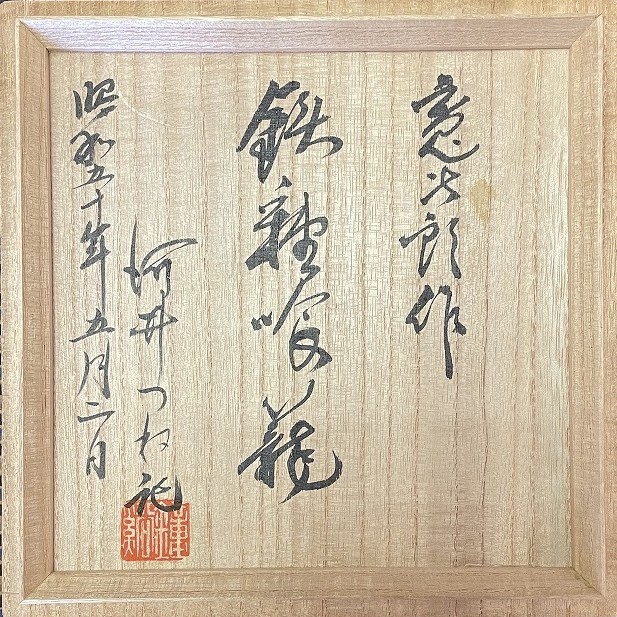 寛次郎作
鉄釉喰籠
河井つね記
昭和五十年五月二日